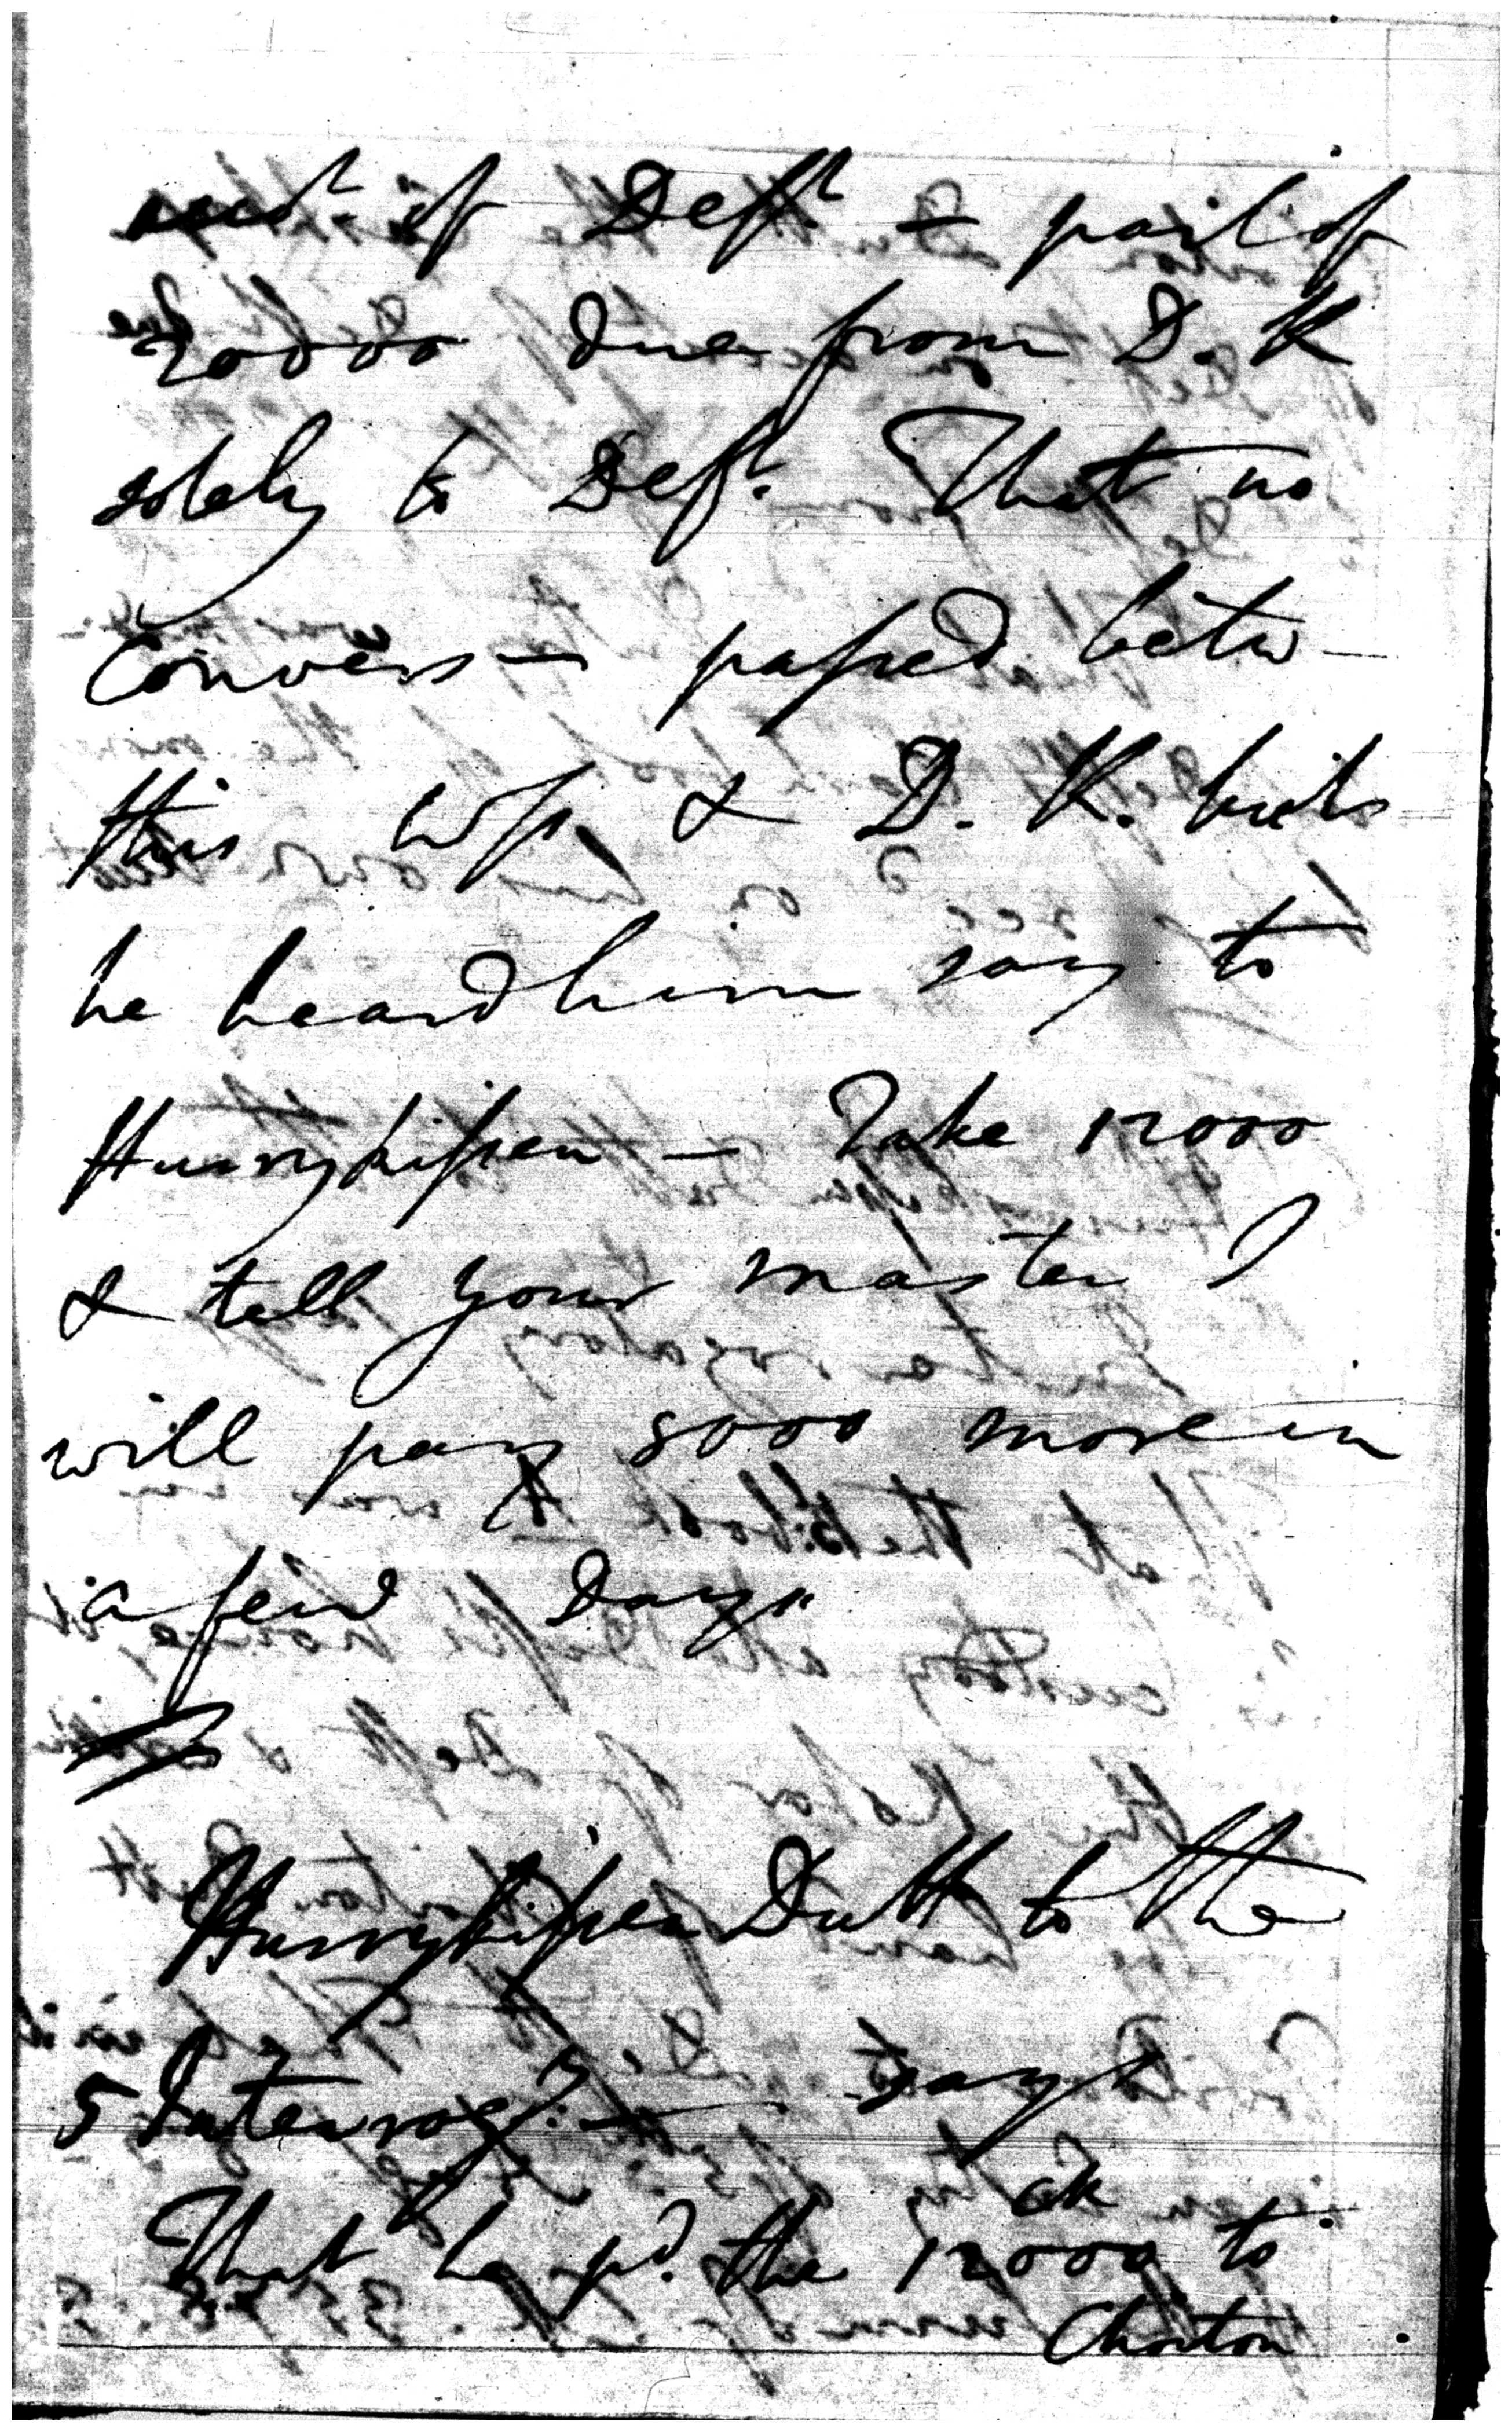 acct. of Deft – part of
20000 due from D. K
solely to Deft. That no
Convers– passed betw–
this Wss. & D. K. but
he heard him say to
Hurrykissen – Take 12000
& tell your master I
will pay 8000 more in
a few Days"
Hurrykissen Dutt to the
5 Interrogy. – says
That he pd. the 12000 to
Choiton